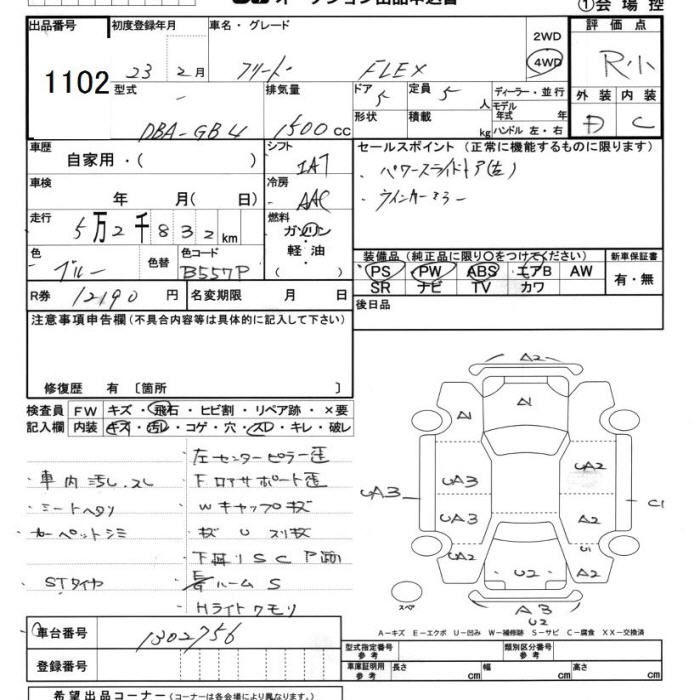 ①会場控
出品番号 初度登録年月 車名・グレード 評価点
1102 23年 2月 フリード FLEX 2WD 4WD R小
型式 排気量 ドア 5 定員 5 人 ディーラー・並行 外装 内装
DBA-GB4 1500cc 形状 積載 kg モデル年式 年 ハンドル 左・右 D C
車歴 自家用・( ) シフト IAT セールスポイント(正常に機能するものに限ります)
・パワースライドドア(左)
車検 年 月(日) 冷房 AAC ・ウインカーミラー
走行 5万2千832km 燃料 ガソリン 軽油 ( )
色 ブルー 色替 色コード B557P
装備品(純正品に限り○をつけてください) 新車保証書
PS PW ABS エアB AW 有・無
SR ナビ TV カワ
R券 12190円 名変期限 月 日 後日品
注意事項申告欄(不具合内容等は具体的に記入して下さい)
修復歴 有 〔箇所 〕
検査員 FW キズ・飛石・ヒビ割・リペア跡・×要
記入欄 内装 キズ・汚レ・コゲ・穴・スレ・キレ・破レ
左センターピラー歪
・車内汚レ、スレ F.ロアサポート歪
・シートヘタリ Wキャップキズ
・カーペットシミ
下廻りSC P跡
STタイヤ ルームS
Hライトクモリ
A2
A1
A1
UA3 UA3 UA2 C1
UA3 A2
UA2 U1
U2 A2
スペア A3
U2
A-キズ E-エクボ U-凹み W-補修跡 S-サビ C-腐食 XX-交換済
車台番号 1302756
登録番号
型式指定番号 参考 類別区分番号 参考
車庫証明用 参考 長さ cm 幅 cm 高さ cm
希望出品コーナー(コーナーは各会場により異なります。)